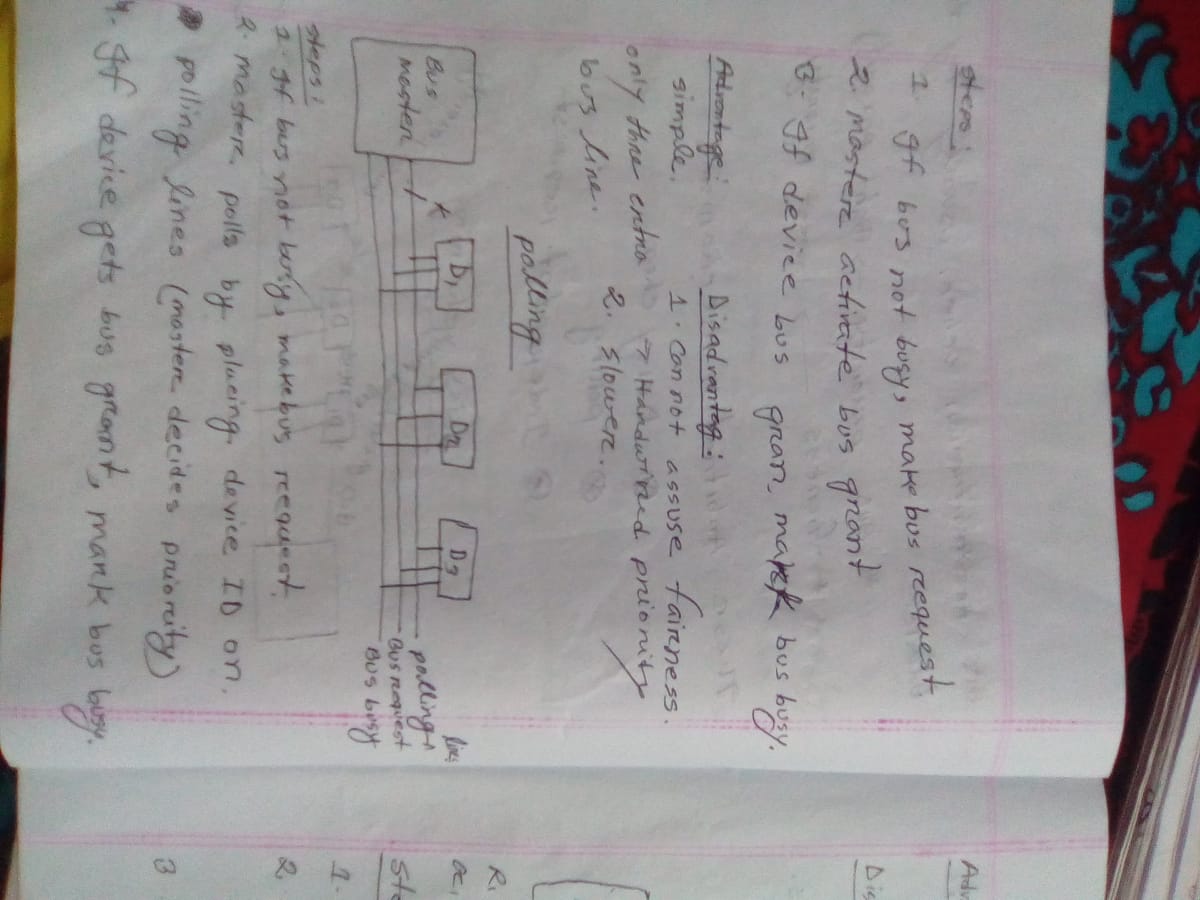 steps:
1. If bus not busy, make bus reequest
2. mastere activate bus grant
3. If device bus gran, mark bus busy.
Advantage:
simple.
only thre extra
bus line.
Disadvantag:
1. Can not assuse fairness.
→ Handwired priority
2. slower.
polling
Bus
master
k
D1
D2
D3
polling lines
Bus request
Bus busy
steps:
1. If bus not busy, make bus reequest.
2. mastere polls by placing device ID on.
polling lines (mastere decides priority)
4. If device gets bus grant, mark bus busy.
Adv
Dis
R1
Ste
1.
2.
3